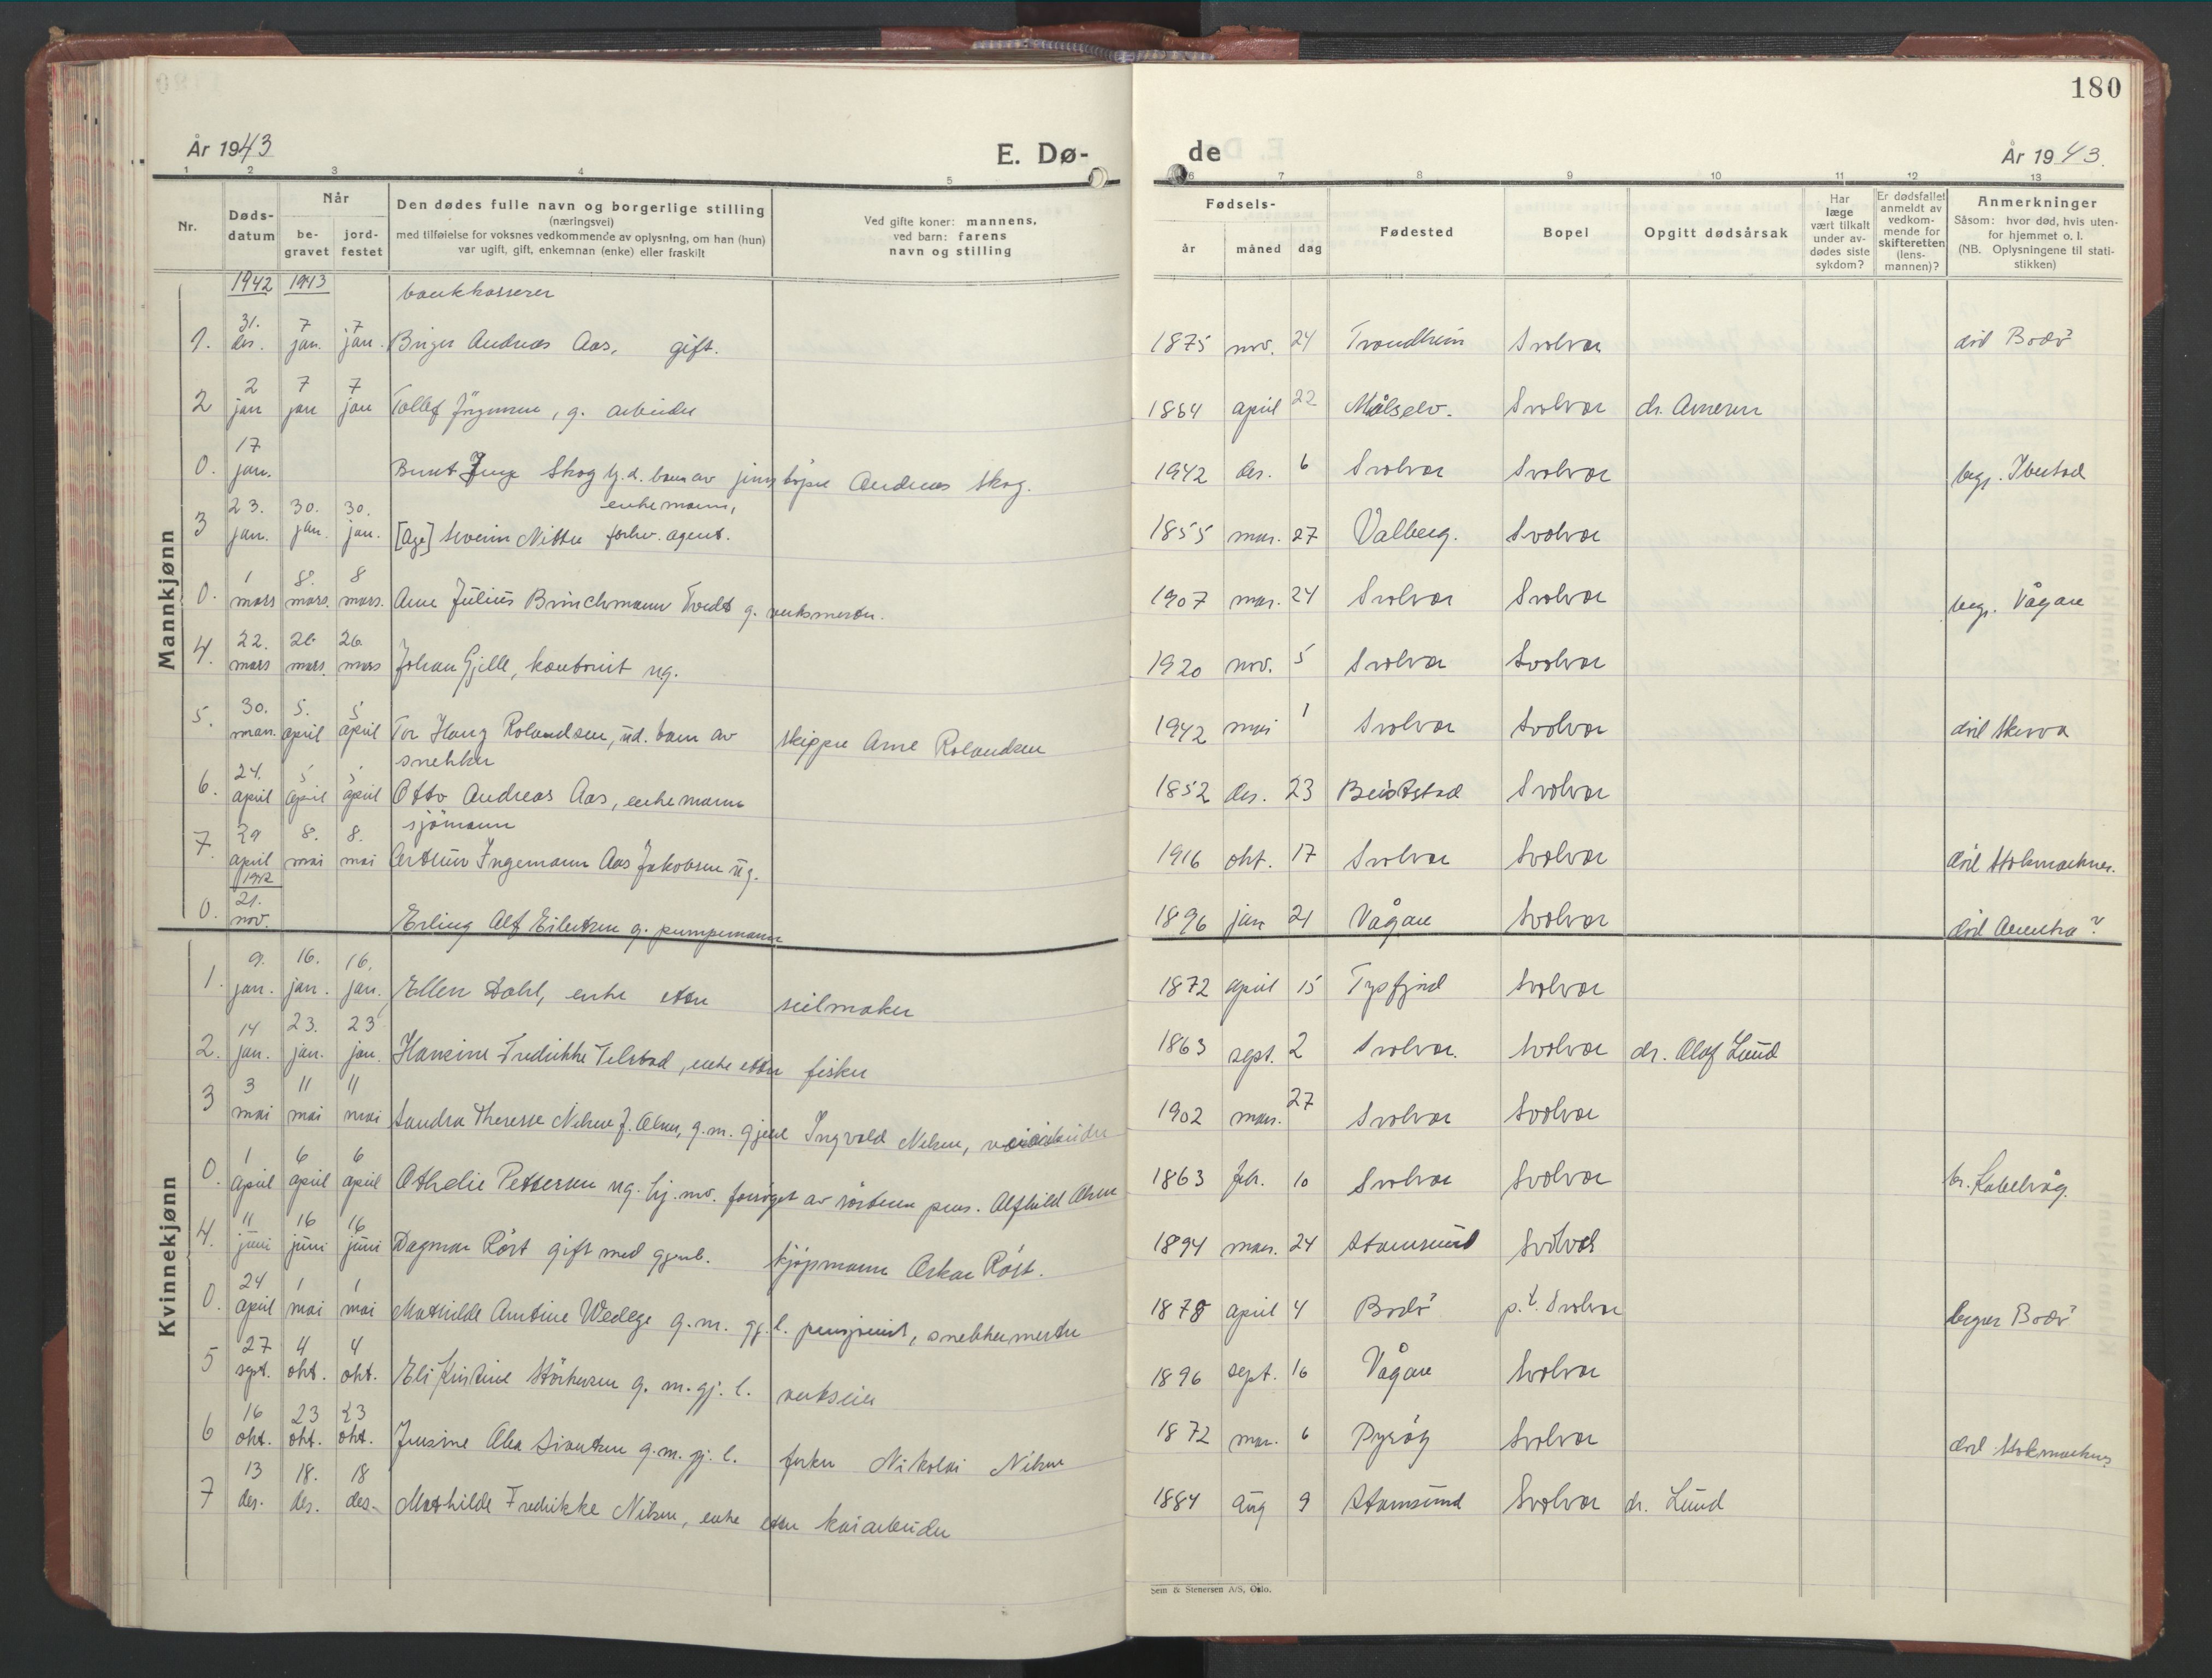 180
År 1943
E. Dø-
de
År 1943.
1 2 3 4 5
6 7 8 9 10 11 12 13
Nr.
Døds-
datum
Når
be-
gravet
jord-
festet
Den dødes fulle navn og borgerlige stilling
(næringsvei)
med tilføielse for voksnes vedkommende av oplysning, om han (hun)
var ugift, gift, enkemnan (enke) eller fraskilt
Ved gifte koner: mannens,
ved barn: farens
navn og stilling
Fødsels-
år måned dag
Fødested
Bopel
Opgitt dødsårsak
Har
læge
vært tilkalt
under av-
dødes siste
sykdom?
Er dødsfallet
anmeldt av
vedkom-
mende for
skifteretten
(lens-
mannen)?
Anmerkninger
Såsom: hvor død, hvis uten-
for hjemmet o. l.
(NB. Oplysningene til stati-
stikken)
Mannkjønn
1942 1943
bankkasserer
1. 31. des. 7 jan. 7 jan. Birger Andreas Aas, gift. 1875 nov. 24 Trondheim Svolvær död Bodö
2 2 jan 7 jan 7 jan Tollef Jörgensen, g. arbeider 1864 april 22 Målselv. Svolvær dr. Arnesen
0. 17 jan. Bernt Inge Skog hj.d. barn av Andreas Skog. 1942 des. 6 Svolvær Svolvær begr. Ibestad
enkemann,
3 23. jan. 30. jan. 30. jan. [Age] Severin forhv. agent. 1855 mar. 27 Valberg. Svolvær
0. 1 mars 8. mars. 8 mars. Arne Julius Brinchmann Tvedt g. verksmester. 1907 mar. 24 Svolvær Svolvær begr. Vågan
4. 22. mars 26 mars. 26 mars Johan Gjille, kontorist ug. 1920 nov. 5 Svolvær Svolvær
5. 30. mars. 5. april 5 april Tor Haug Rolandsen, ud. barn av skipper Arne Rolandsen 1942 mai 1 Svolvær Svolvær
snekker
6. 24. april 5 april 5 april Otto Andreas Aas, enkemann 1852 des. 23 Beitstad Svolvær
sjömann
7. 29 april 8. mai 8. mai Arthur Ingemann Aas Jakobsen ug. 1916 okt. 17 Svolvær Svolvær död Stokmarknes.
1942
0. 21. nov. Erling Alf Eilertsen g. pumpemann 1896 jan 21 Vågan Svolvær död Amerika?
Kvinnekjønn
1. 9. jan. 16. jan. 16. jan. Ellen Dahl, enke etter seilmaker 1872 april 15 Tysfjord Svolvær
2. 14 jan. 23. jan. 23 jan. Hansine Fredrikke Telstad, enke etter fisker 1863 sept. 2 Svolvær. Svolvær dr. Olaf Lund
3 3 mai 11 mai 11 mai Sandra Therese Nilsen f. Olsen, g.m. gjenl Ingvald Nilsen, veiarbeider 1902 mars. 27 Svolvær Svolvær
0. 1 april 6 april 6 april Othelie Pettersen ug. hj. mv. forsörget av söstren pens. Alfhild Olsen 1863 feb. 10 Svolvær Svolvær br. Kabelvåg.
4. 11 juni 16 juni 16 juni Dagmar Röst gift med gjenl. kjöpmann Oskar Röst. 1894 mar. 24 Stamsund Svolvær
0. 24 april 1 mai 1 mai Mathilde Antine Wedege g. m. gj. l. pensjonist, snekkermester 1878 april 4 Bodö p.t. Svolvær begr Bodö
5 27 sept. 4 okt. 4 okt. Eli Kristine Störkersen g. m. gj. l. verkseier 1896 sept. 16 Vågan Svolvær
6 16 okt. 23 okt. 23 okt. Jensine Olea Sivertsen g.m. gj. l. fisker Nikolai Nilsen 1872 mar. 6 Svolvær död Stokmarknes
7 13 des. 18. des. 18 des. Mathilde Fredrikke Nilsen, enke etter kaiarbeider 1884 aug 9 Stamsund Svolvær dr. Lund
Sem & Stenersen A/S, Oslo.